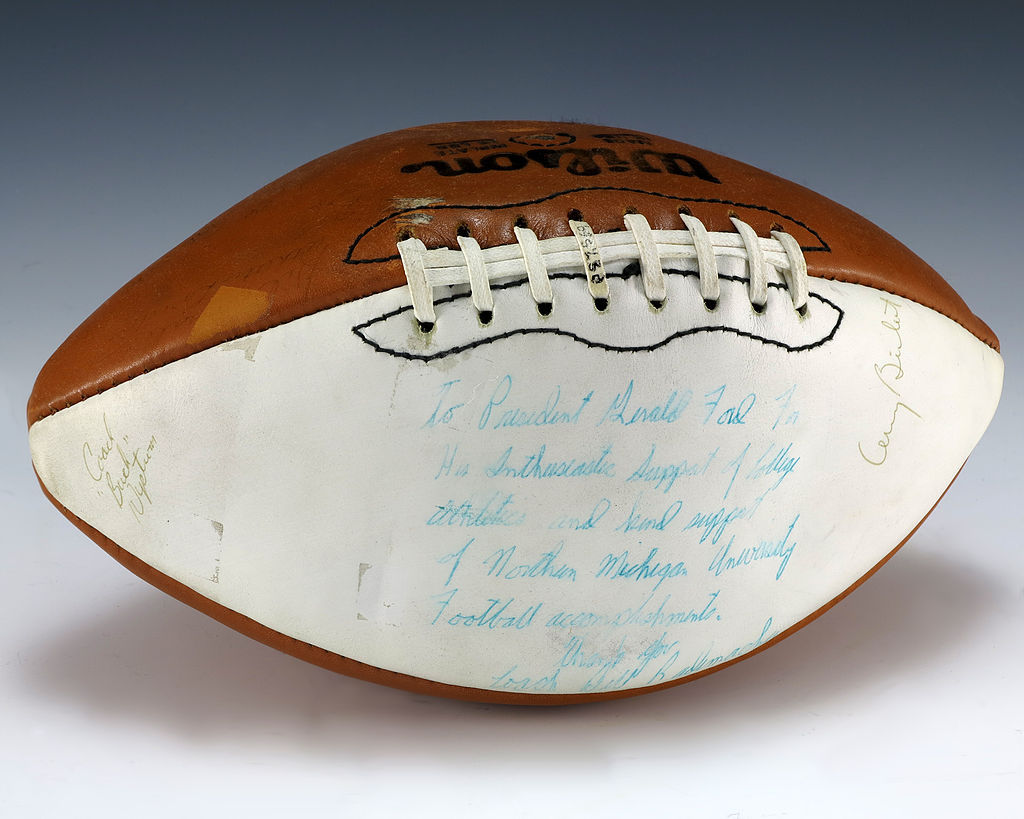 Wilson
To President Gerald Ford For
His Inthusiastic Support of College
athletics and kind support
of Northern Michigan University
Football accomplishments.
Thank you
Coach Bill Rademacher
Coach
"Buck"
Nystrom